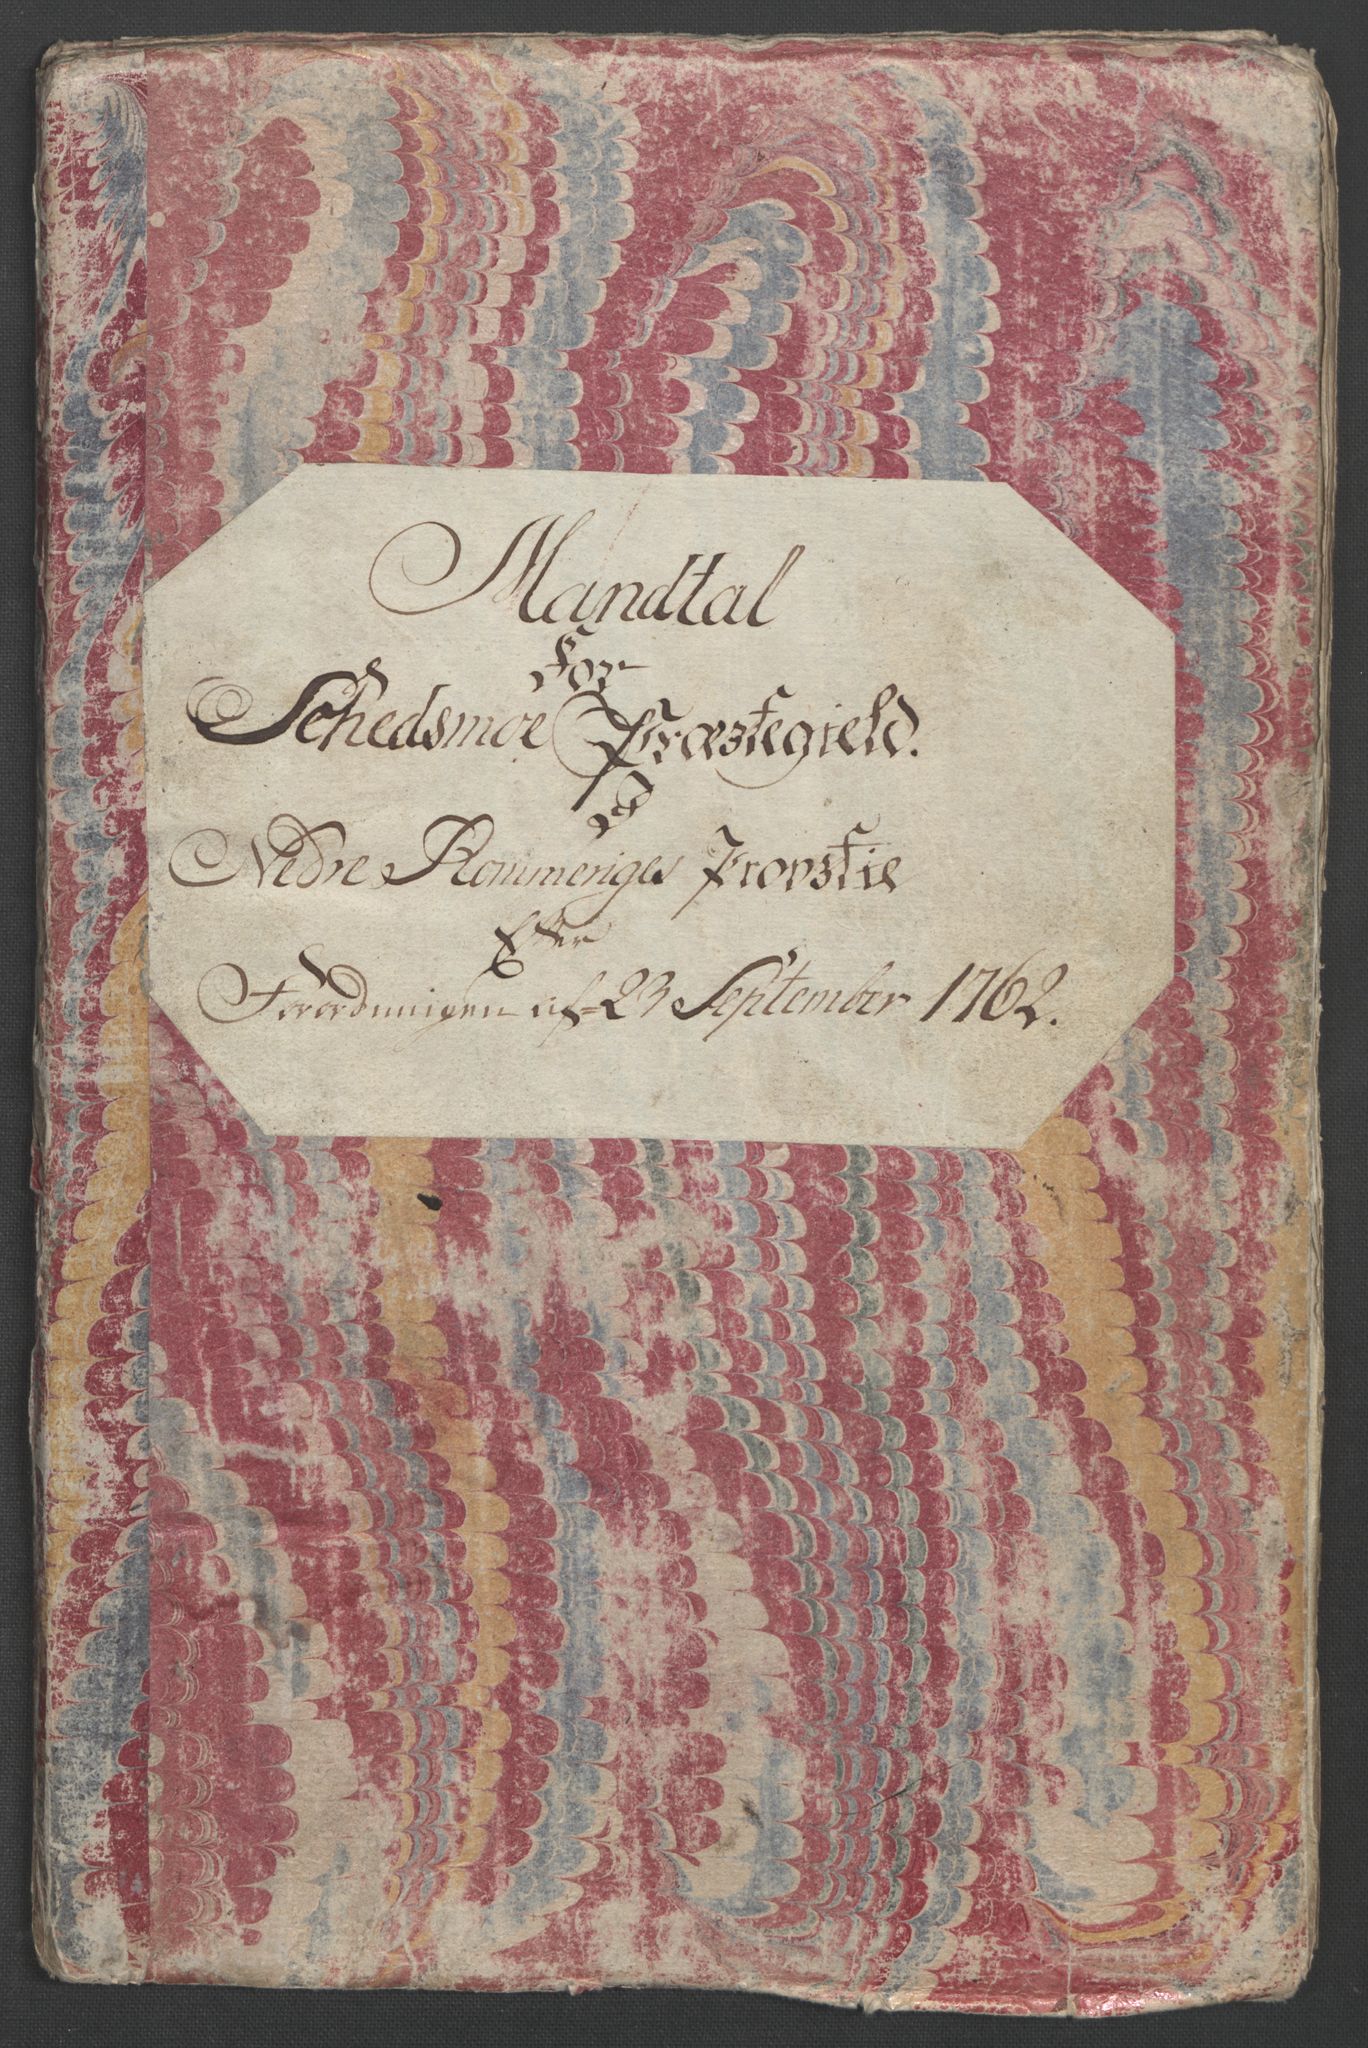 Mandtal
for
Schedsmoe Præstegield.
i
Nedre Rommeriges Provstie
Efter
Forordningen af 23 September 1762.